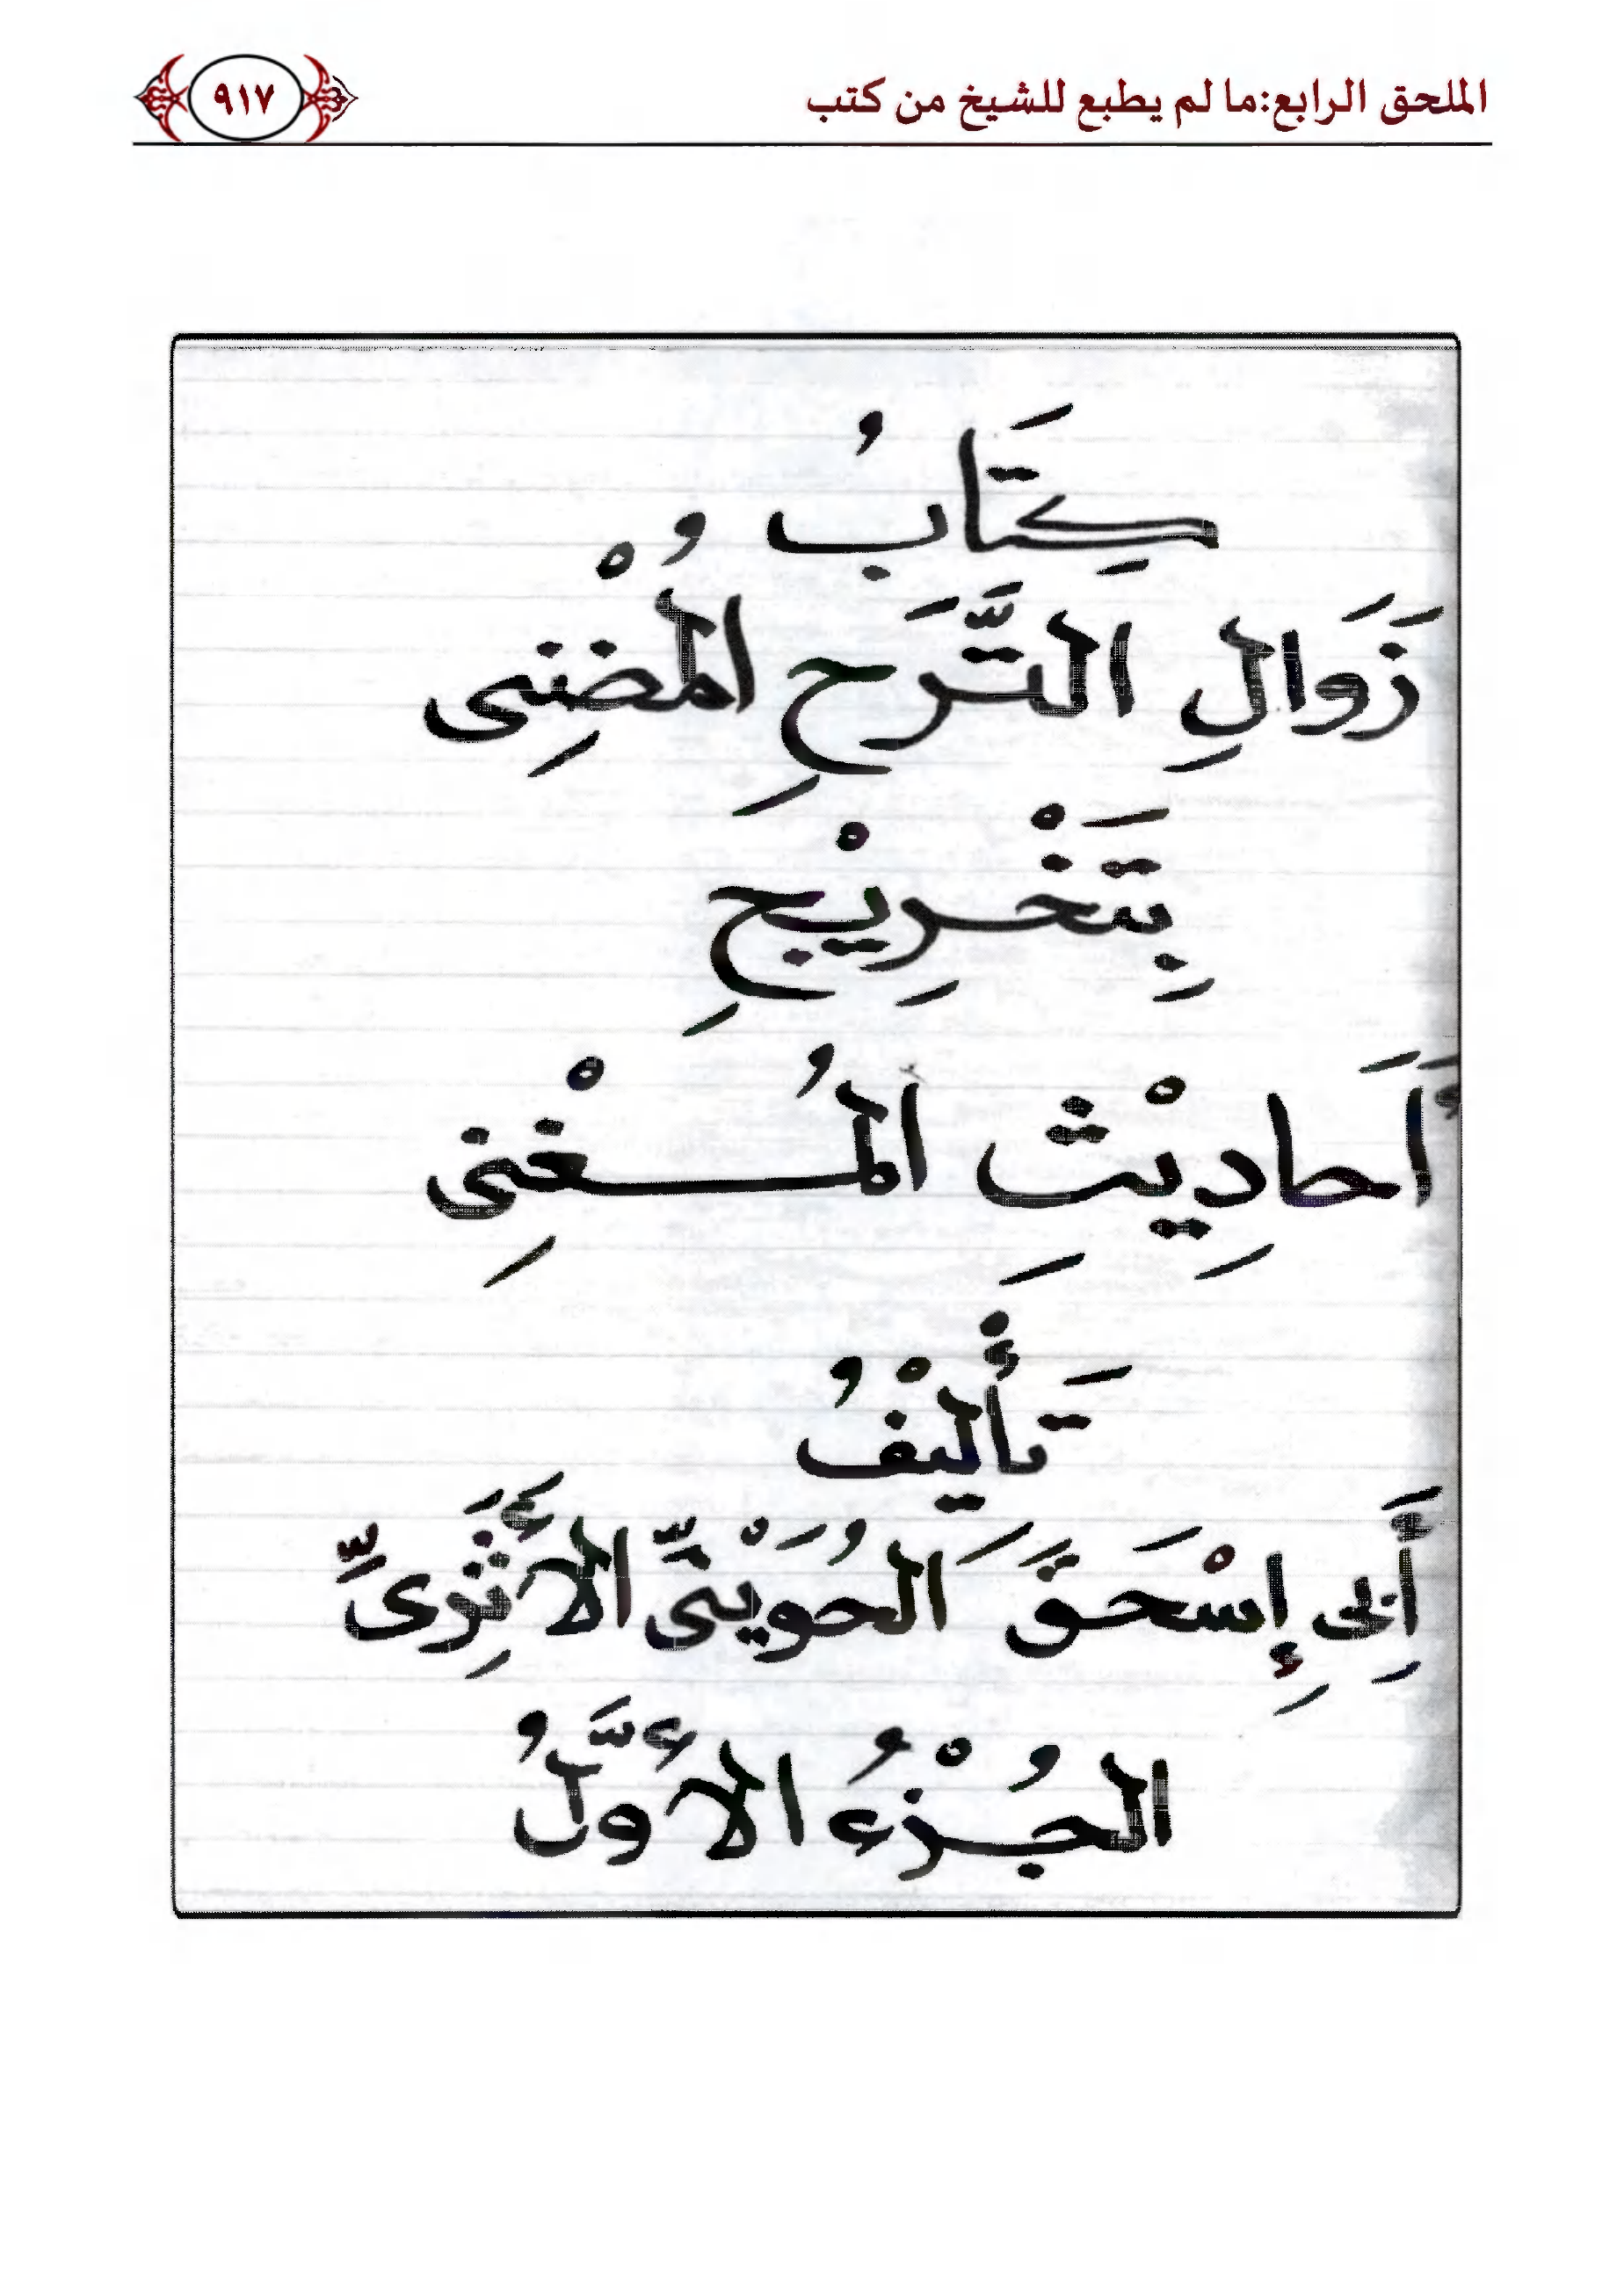 الملحق الرابع:ما لم يطبع للشيخ من كتب
٩١٧
كِتَابُ
زَوَالِ التَّرَحِ المُضْنِى
بِتَخْرِيْجِ
أَحَادِيْثِ المُسْغْنِى
تَأْلِيْفُ
أَبِى إِسْحَقَ الحُوَيْنِىِّ الأَثَرِىِّ
الجُزْءُ الأَوَّلُ